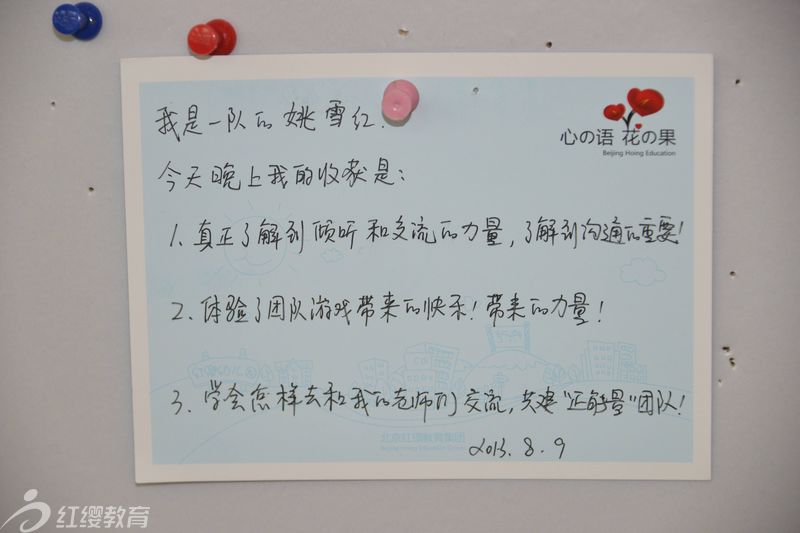 我是一队的姚雪红.
心の语 花の果
Beijing Hoing Education
今天晚上我的收获是：
1、真正了解到倾听和交流的力量，了解到沟通的重要！
2、体验了团队游戏带来的快乐！带来的力量！
3、学会怎样去和我的老师们交流，共建“正能量”团队！
北京红缨教育集团
Beijing Hoing Education Group
2013.8.9
红缨教育